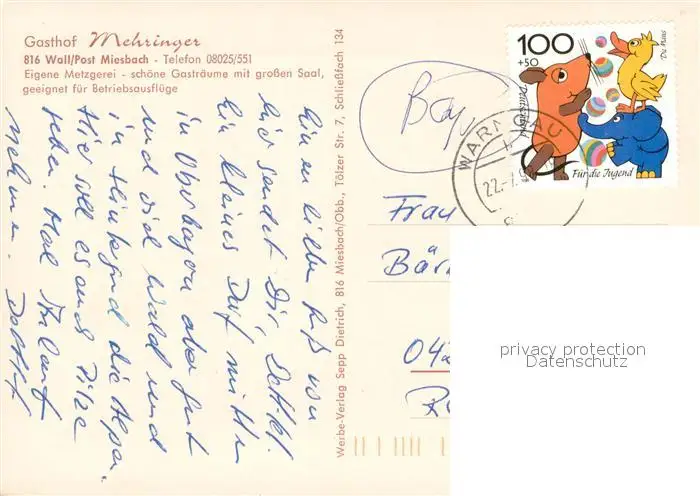 Gasthof Mehringer
816 Wall/Post Miesbach - Telefon 08025/551
Eigene Metzgerei - schöne Gasträume mit großen Saal,
geeignet für Betriebsausflüge
lieben Gruß von
hier sendet Dir, Detlef.
Ein kleines Dorf mitten
in Oberbayern aber gut
und viel Wald und
in Hinterrund die Alpen.
Hier soll es auch Pilze
geben. Mal
Detlef
Werbe-Verlag Sepp Dietrich, 816 Miesbach/Obb., Tölzer Str. 7, Schließfach 134
Bay
100
+50
Deutschland
Die Maus
Für die Jugend
WARNGAU
22.-7.
Frau
Bär
042
privacy protection
Datenschutz